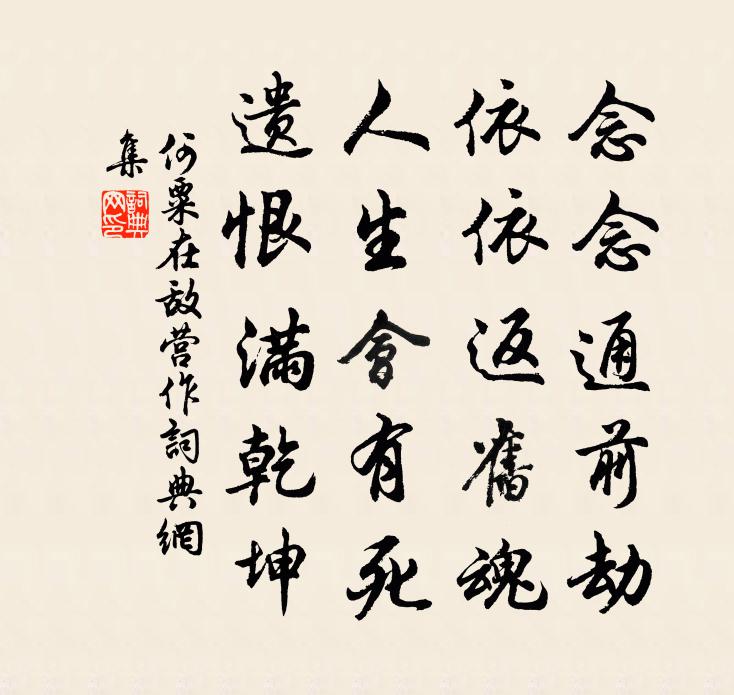 念念通前劫
依依返舊魂
人生會有死
遺恨滿乾坤
何栗在敌营作詞典網
集
詞典
网印